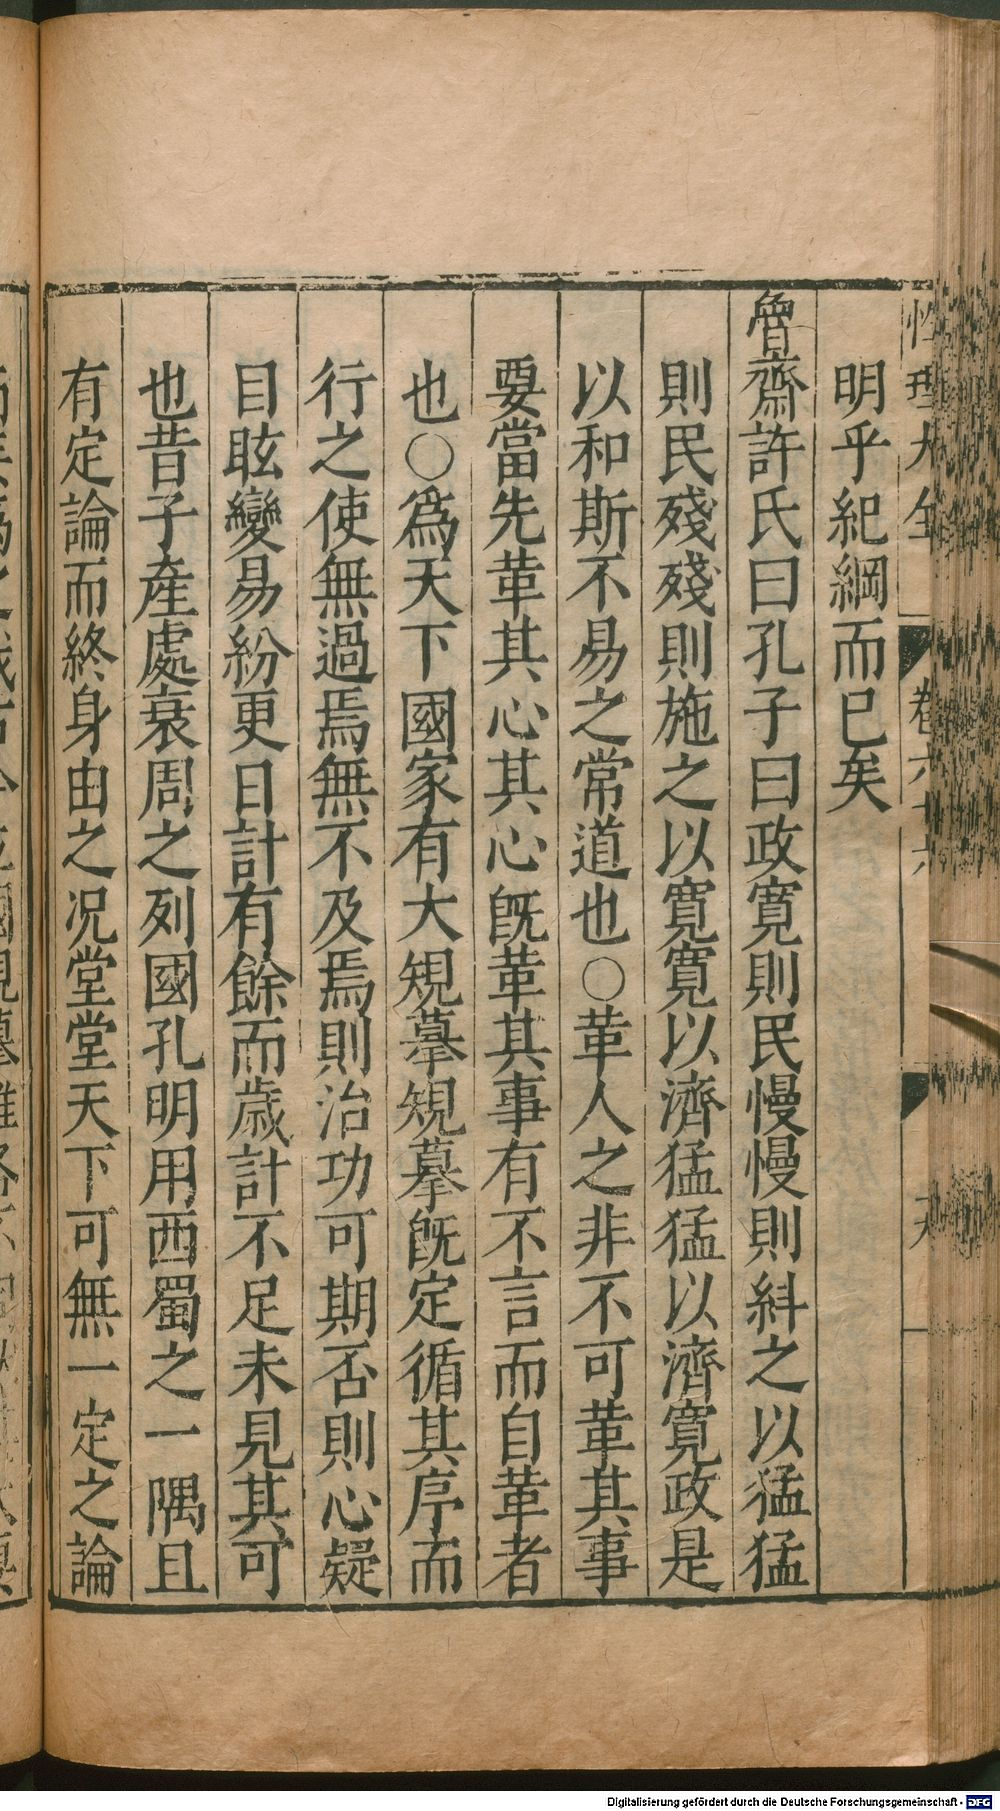 性理大全 卷六十六
明乎紀綱而已矣
魯齋許氏曰孔子曰政寬則民慢慢則糾之以猛猛
則民殘殘則施之以寬寬以濟猛猛以濟寬政是
以和斯不易之常道也○革人之非不可革其事
要當先革其心其心旣革其事有不言而自革者
也○爲天下國家有大規摹規摹旣定循其序而
行之使無過焉無不及焉則治功可期否則心疑
目眩變易紛更日計有餘而歲計不足未見其可
也昔子產處衰周之列國孔明用西蜀之一隅且
有定論而終身由之况堂堂天下可無一定之論
Digitalisierung gefördert durch die Deutsche Forschungsgemeinschaft - DFG